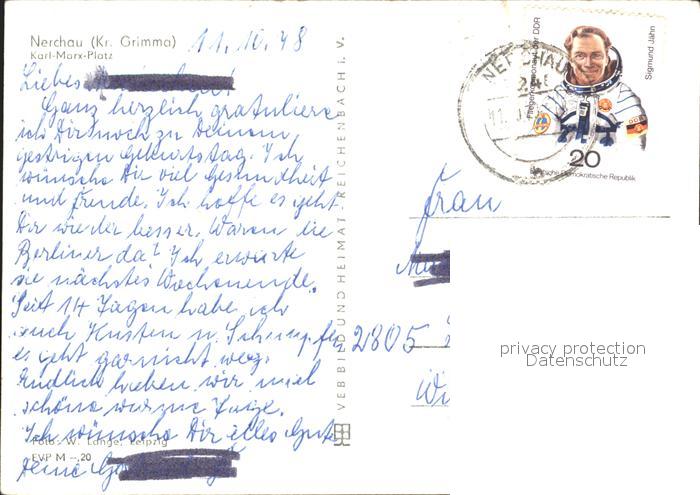 Nerchau (Kr. Grimma) 11.10.78
Karl-Marx-Platz
Liebes
Ganz herzlich gratuliere
ich Dir noch zu Deinem
gestrigen Geburtstag. Ich
wünsche Dir viel Gesundheit
und Freude. Ich hoffe es geht
Dir wieder besser. Waren die
Berliner da? Ich erwarte
sie nächstes Wochenende.
Seit 14 Tagen habe ich
auch Husten u. Schnupfen
es geht gar nicht weg.
Endlich haben wir mal
schöne warme Tage.
Ich wünsche Dir alles Gute
Deine
Foto: W. Lange, Leipzig
EVP M -,20
VEB BILD UND HEIMAT REICHENBACH i. V.
NERCHAU
11.
Sigmund Jähn
20
Deutsche Demokratische Republik
DDR
Frau
2805
privacy protection
Datenschutz